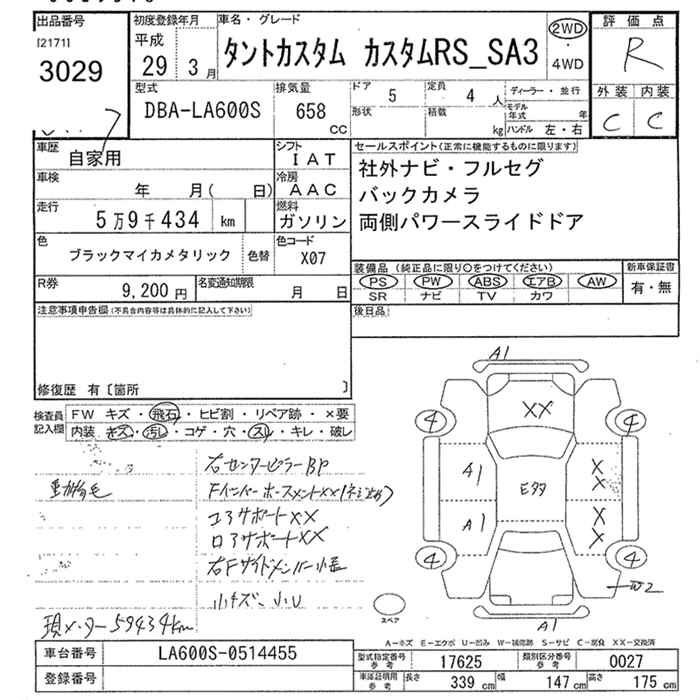 出品番号
[2171]
3029
初度登録年月
平成
29年 3月
車名・グレード
タントカスタム カスタムRS_SA3
2WD
・
4WD
評価点
R
外装 内装
C C
型式
DBA-LA600S
排気量
658
CC
ドア
5
定員
4人
形状
積載
kg
ディーラー・並行
モデル年式 年
ハンドル 左・右
車歴
自家用
シフト
IAT
車検
年 月( 日)
冷房
AAC
走行
5万9千434 km
燃料
ガソリン
色
ブラックマイカメタリック
色替
色コード
X07
R券
9,200円
名変通知期限
月 日
セールスポイント(正常に機能するものに限ります)
社外ナビ・フルセグ
バックカメラ
両側パワースライドドア
装備品 (純正品に限り○をつけてください)
PS PW ABS エアB AW
SR ナビ TV カワ
新車保証書
有・無
後日品
注意事項申告欄(不具合内容等は具体的に記入して下さい)
修復歴 有〔箇所 〕
検査員記入欄
FW キズ・飛石・ヒビ割・リペア跡・×要
内装 キズ・汚レ・コゲ・穴・スレ・キレ・破レ
右センターピラーBP
Fインナーホースメント××(ネジ止め)
コアサポート××
ロアサポート××
右Fサイドメンバー小歪
小キズ、小U
現メーター59434km
A1
××
4 4
A1
××
Eクク
A1
××
4 4
W2
A1
スペア
A-キズ E-エクボ U-凹み W-補修跡 S-サビ C-腐食 XX-交換済
車台番号
LA600S-0514455
登録番号
型式指定番号参考
17625
類別区分番号参考
0027
車庫証明用参考
長さ 339 cm
幅 147 cm
高さ 175 cm